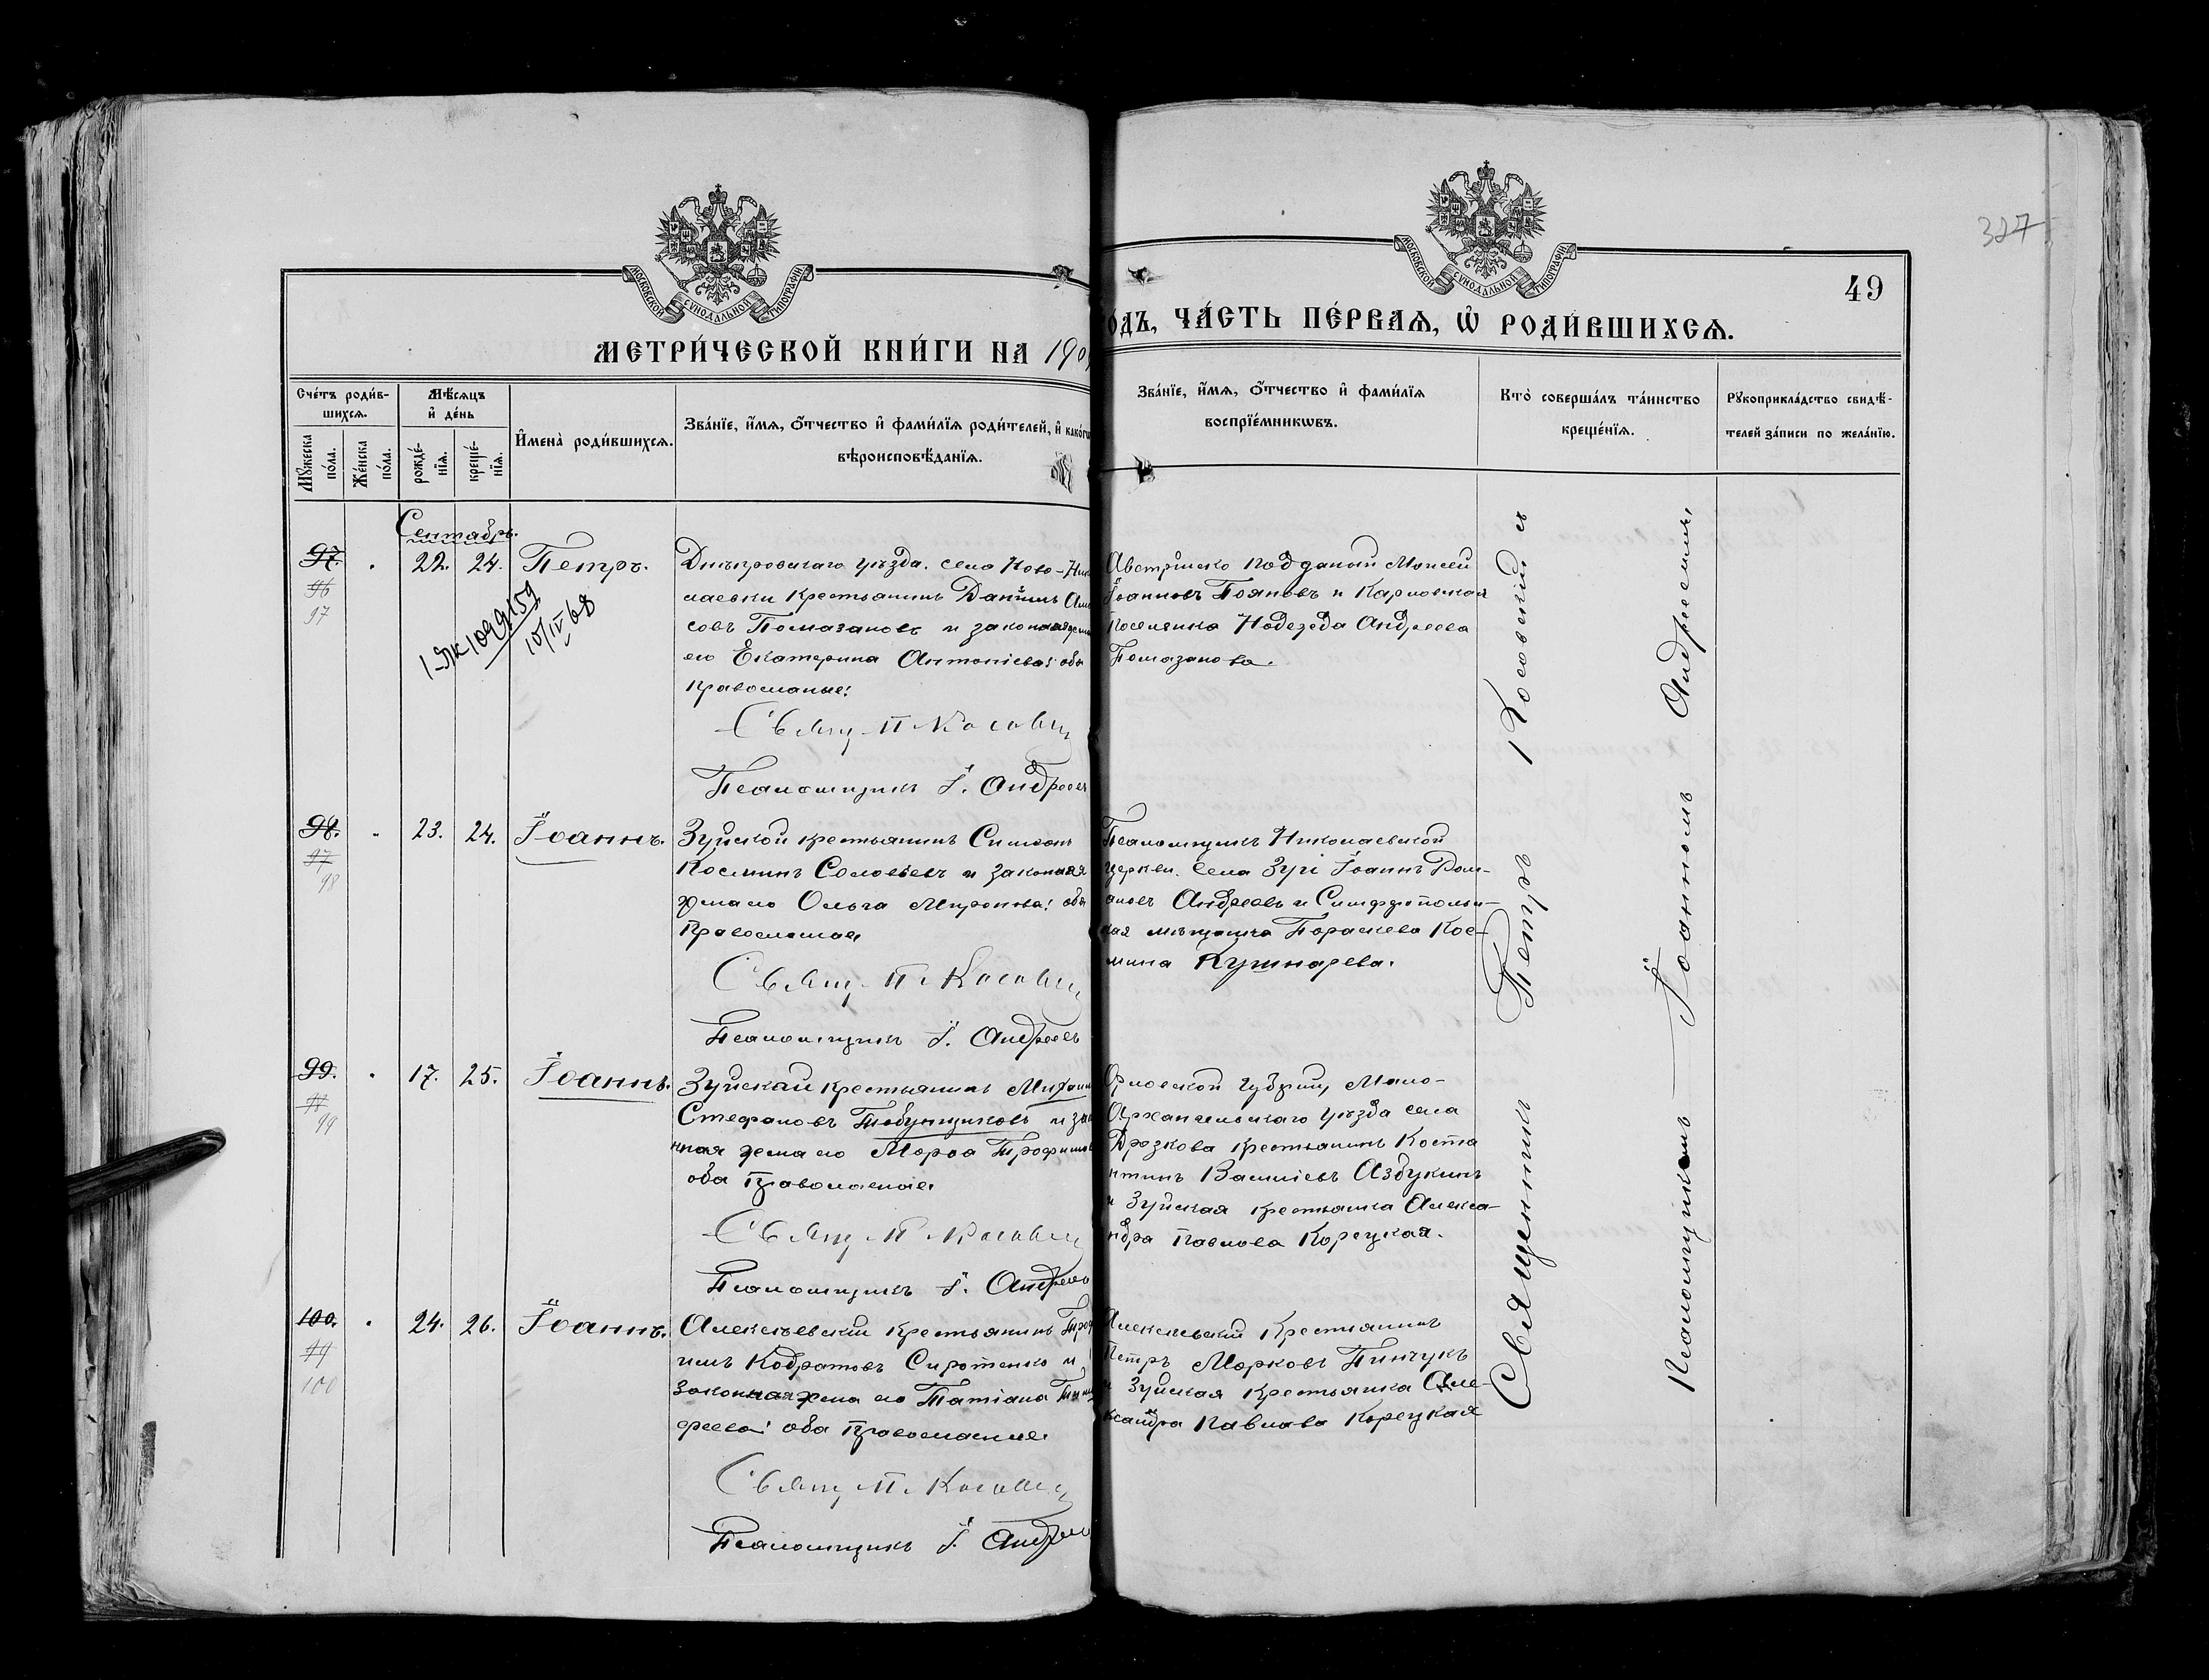 327
49
МОСКОВСКОЙ СѴНОДАЛЬНОЙ ТИПОГРАФІИ
МОСКОВСКОЙ СѴНОДАЛЬНОЙ ТИПОГРАФІИ
МЕТРИ́ЧЕСКОЙ КНИ́ГИ НА 190
ОДЪ, ЧА́СТЬ ПЕ́РВАЯ, Ѡ҆ РОДИ́ВШИХСЯ.
Сче́тъ роди́в-
шихся.
Мꙋ́жеска по́ла.
Же́нска по́ла.
Мѣ́сяцъ и҆ де́нь
рожде́-
нїя.
креще́-
нїя.
И҆мена̀ роди́вшихся.
Зва́нїе, и҆́мя, ѻ҆́тчество и҆ фами́лїя роди́телей, и҆ како́гѡ
вѣроисповѣ́данїя.
Зва́нїе, и҆́мя, ѻ҆́тчество и҆ фами́лїя
воспрїе́мникѡвъ.
Кто̀ соверша́лъ та́инство
креще́нїя.
Рꙋкоприкла́дство свидѣ́-
телей за́писи по жела́нїю.
Сентябрь.
97. 22. 24. Петръ.
96
97
Днѣпровскаго уѣзда. села Ново-Ник
лаевки крестьянинъ Даніилъ
совъ Помазановъ и законная жена
его Екатерина Антоніева: оба
православные:
Свящ. П. Косовск
Псаломщикъ І. Андреевъ
Австрійско подданый Моисей
Іоанновъ Бояновъ и Карловская
поселянка Надежда Андреева
Помазанова.
10/IV 68
98. 23. 24. Іоаннъ.
97
98
Зуйской крестьянинъ Симеонъ
Косминъ Соловьевъ и законная
жена его Ольга Миронова: оба
православные
Свящ. П. Косовск
Псаломщикъ І. Андреевъ
Псаломщикъ Николаевской
церкви села Зуи Іоаннъ Ром-
ановъ Андреевъ и Симферополь-
ская мѣщанка Параскева Кос-
мина Кушнарева.
99. 17. 25. Іоаннъ.
98
99
Зуйскай крестьянинъ Михаил
Стефановъ Табунщиковъ и зак
нная жена его Марѳа Трофимов
оба православные
Свящ. П. Косовск
Псаломщикъ І. Андреев
Орловской губрніи, Мало-
Архангельскаго уѣзда села
Дрозкова крестьянинъ Коста
нтинъ Василіевъ Азбукинъ
и Зуйская крестьянка Алекса-
ндра Павлова Корецкая.
100. 24. 26. Іоаннъ.
99
100
Алексѣевскій крестьянинъ Троф
имъ Кодратовъ Сиротенко и
законная жена его Татіана Тим
феева: оба православные.
Свящ. П. Косовск
Псаломщикъ І. Андреев
Алексѣевскій Крестьянинъ
Петръ Марковъ Пинчукъ
и Зуйская крестьянка Але-
ксандра Павлова Корецкая
Священникъ Петръ Косовскій съ
Псаломщикомъ Іоанномъ Андреевымъ,